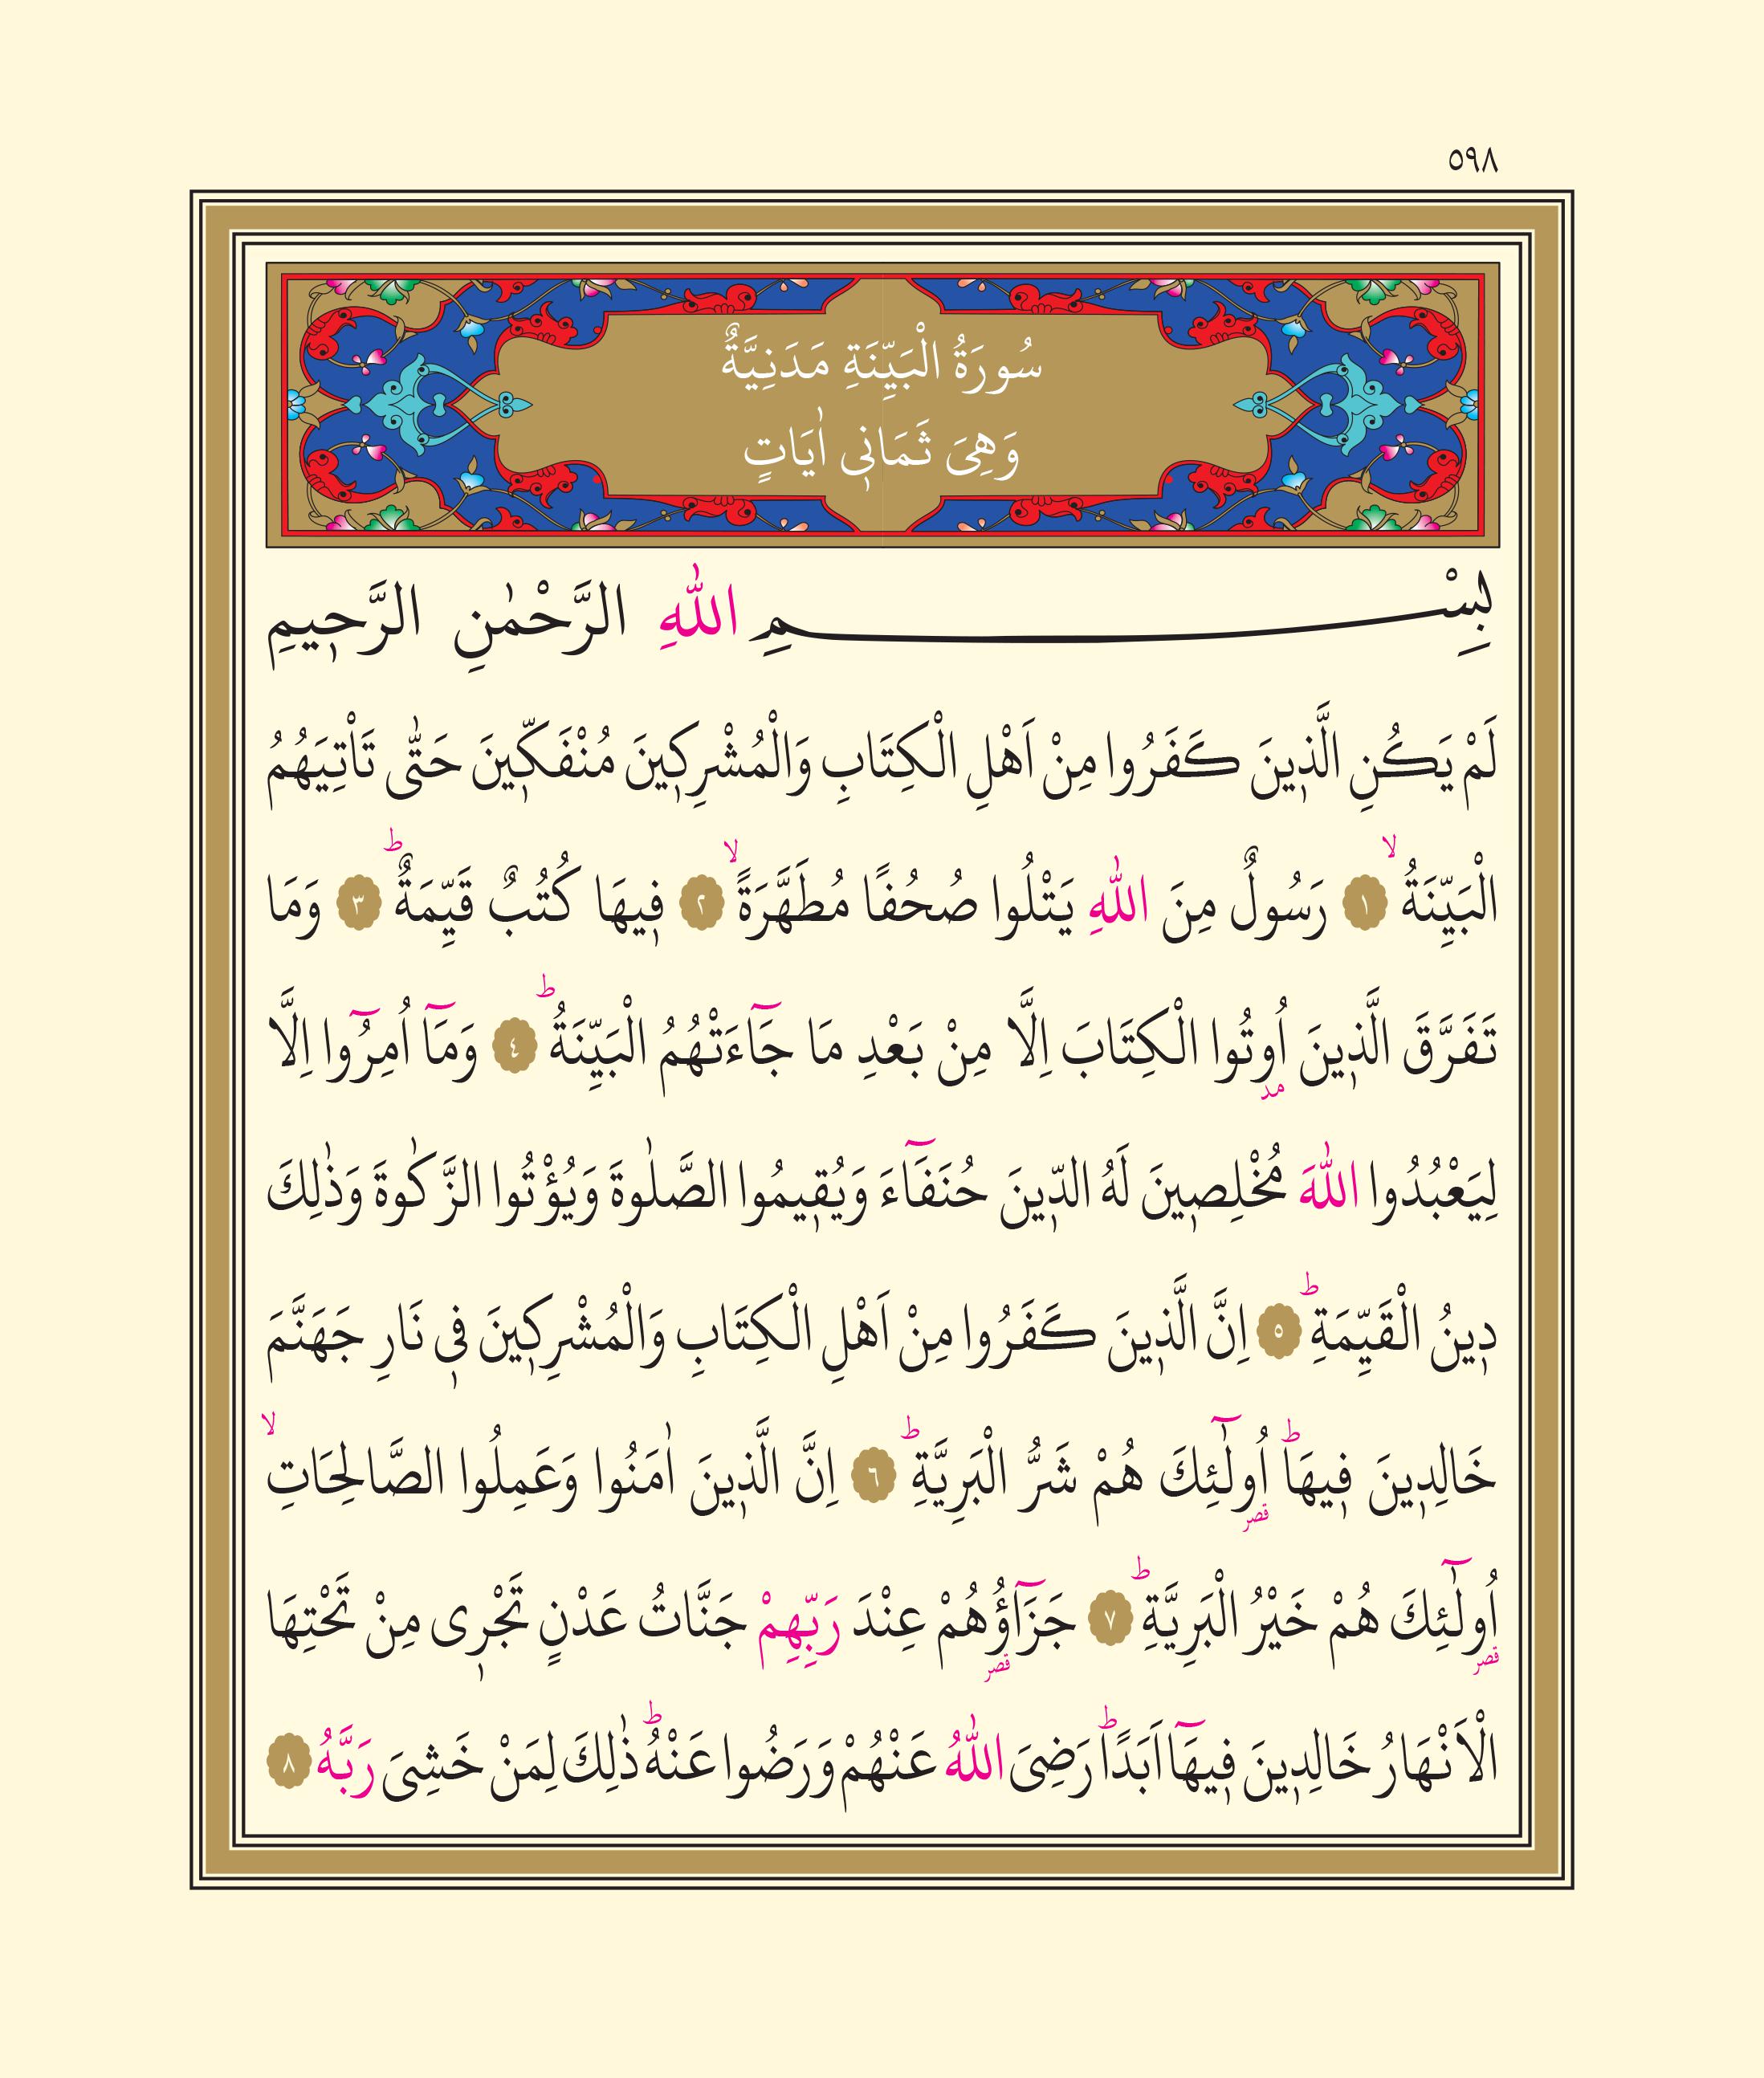 ٥٩٨
سُورَةُ الْبَيِّنَةِ مَدَنِيَّةٌ
وَهِيَ ثَمَانٖى اٰيَاتٍ
بِسْمِ اللّٰهِ الرَّحْمٰنِ الرَّحٖيمِ
لَمْ يَكُنِ الَّذٖينَ كَفَرُوا مِنْ اَهْلِ الْكِتَابِ وَالْمُشْرِكٖينَ مُنْفَكّٖينَ حَتّٰى تَاْتِيَهُمُ
الْبَيِّنَةُۙ ١ رَسُولٌ مِنَ اللّٰهِ يَتْلُوا صُحُفًا مُطَهَّرَةًۙ ٢ فٖيهَا كُتُبٌ قَيِّمَةٌؕ ٣ وَمَا
تَفَرَّقَ الَّذٖينَ اُوتُوا الْكِتَابَ اِلَّا مِنْ بَعْدِ مَا جَٓاءَتْهُمُ الْبَيِّنَةُؕ ٤ وَمَٓا اُمِرُٓوا اِلَّا
لِيَعْبُدُوا اللّٰهَ مُخْلِصٖينَ لَهُ الدّٖينَ حُنَفَٓاءَ وَيُقٖيمُوا الصَّلٰوةَ وَيُؤْتُوا الزَّكٰوةَ وَذٰلِكَ
دٖينُ الْقَيِّمَةِؕ ٥ اِنَّ الَّذٖينَ كَفَرُوا مِنْ اَهْلِ الْكِتَابِ وَالْمُشْرِكٖينَ فٖى نَارِ جَهَنَّمَ
خَالِدٖينَ فٖيهَاؕ اُولٰٓئِكَ هُمْ شَرُّ الْبَرِيَّةِؕ ٦ اِنَّ الَّذٖينَ اٰمَنُوا وَعَمِلُوا الصَّالِحَاتِۙ
اُولٰٓئِكَ هُمْ خَيْرُ الْبَرِيَّةِؕ ٧ جَزَٓاؤُهُمْ عِنْدَ رَبِّهِمْ جَنَّاتُ عَدْنٍ تَجْرٖى مِنْ تَحْتِهَا
الْاَنْهَارُ خَالِدٖينَ فٖيهَٓا اَبَدًاؕ رَضِىَ اللّٰهُ عَنْهُمْ وَرَضُوا عَنْهُؕ ذٰلِكَ لِمَنْ خَشِىَ رَبَّهُ ٨